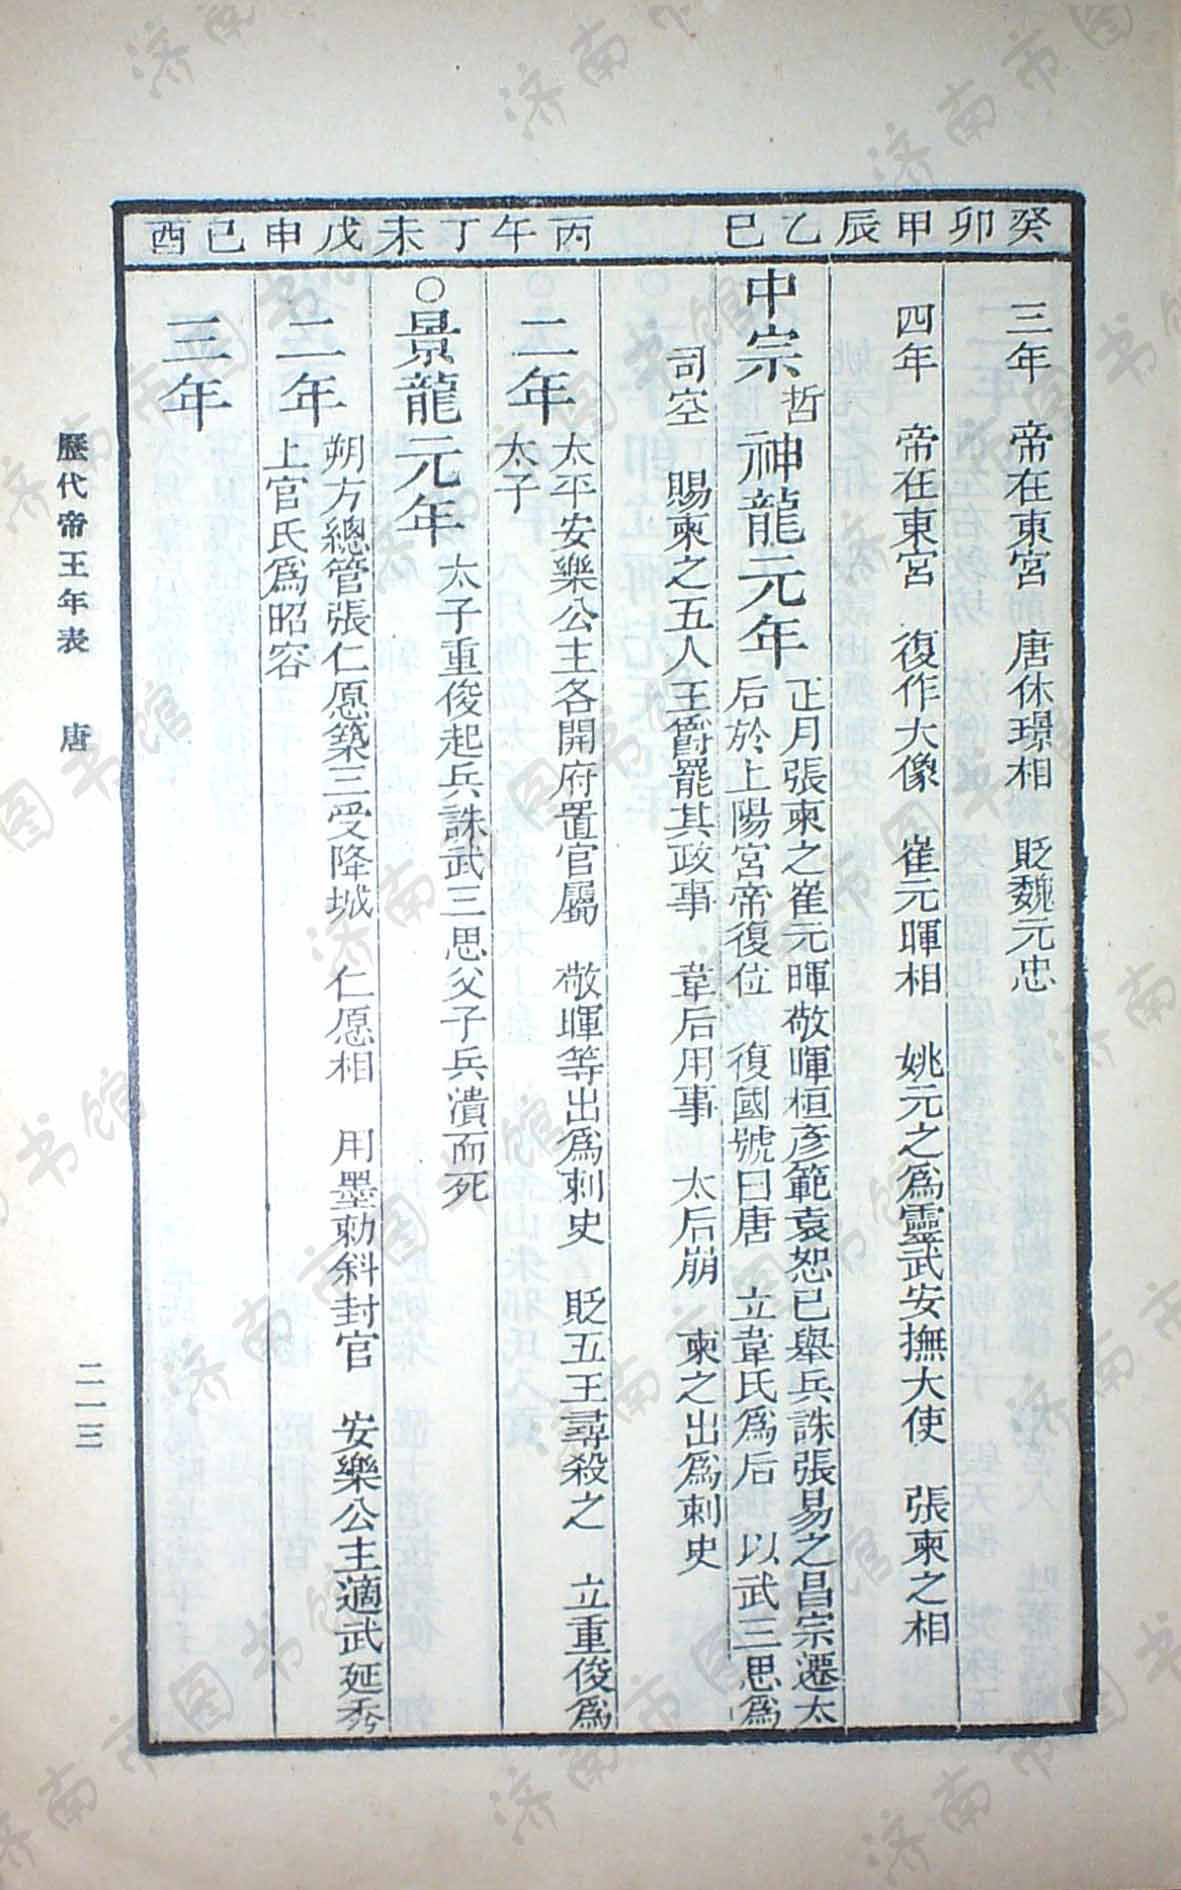 癸卯 甲辰 乙巳 丙午 丁未 戊申 己酉
三年 帝在東宮 唐休璟相 貶魏元忠
四年 帝在東宮 復作大像 崔元暐相 姚元之爲靈武安撫大使 張柬之相
中宗哲神龍元年 正月張柬之崔元暐敬暉桓彥範袁恕己舉兵誅張易之昌宗遷太
后於上陽宮帝復位 復國號曰唐 立韋氏爲后 以武三思爲
司空 賜柬之五人王爵罷其政事 韋后用事 太后崩 柬之出爲刺史
二年 太平安樂公主各開府置官屬 敬暉等出爲刺史 貶五王尋殺之 立重俊爲
太子
○景龍元年 太子重俊起兵誅武三思父子兵潰而死
二年 朔方總管張仁愿築三受降城 仁愿相 用墨勅斜封官 安樂公主適武延秀
上官氏爲昭容
三年
歷代帝王年表 唐 二一三
济南市图书馆